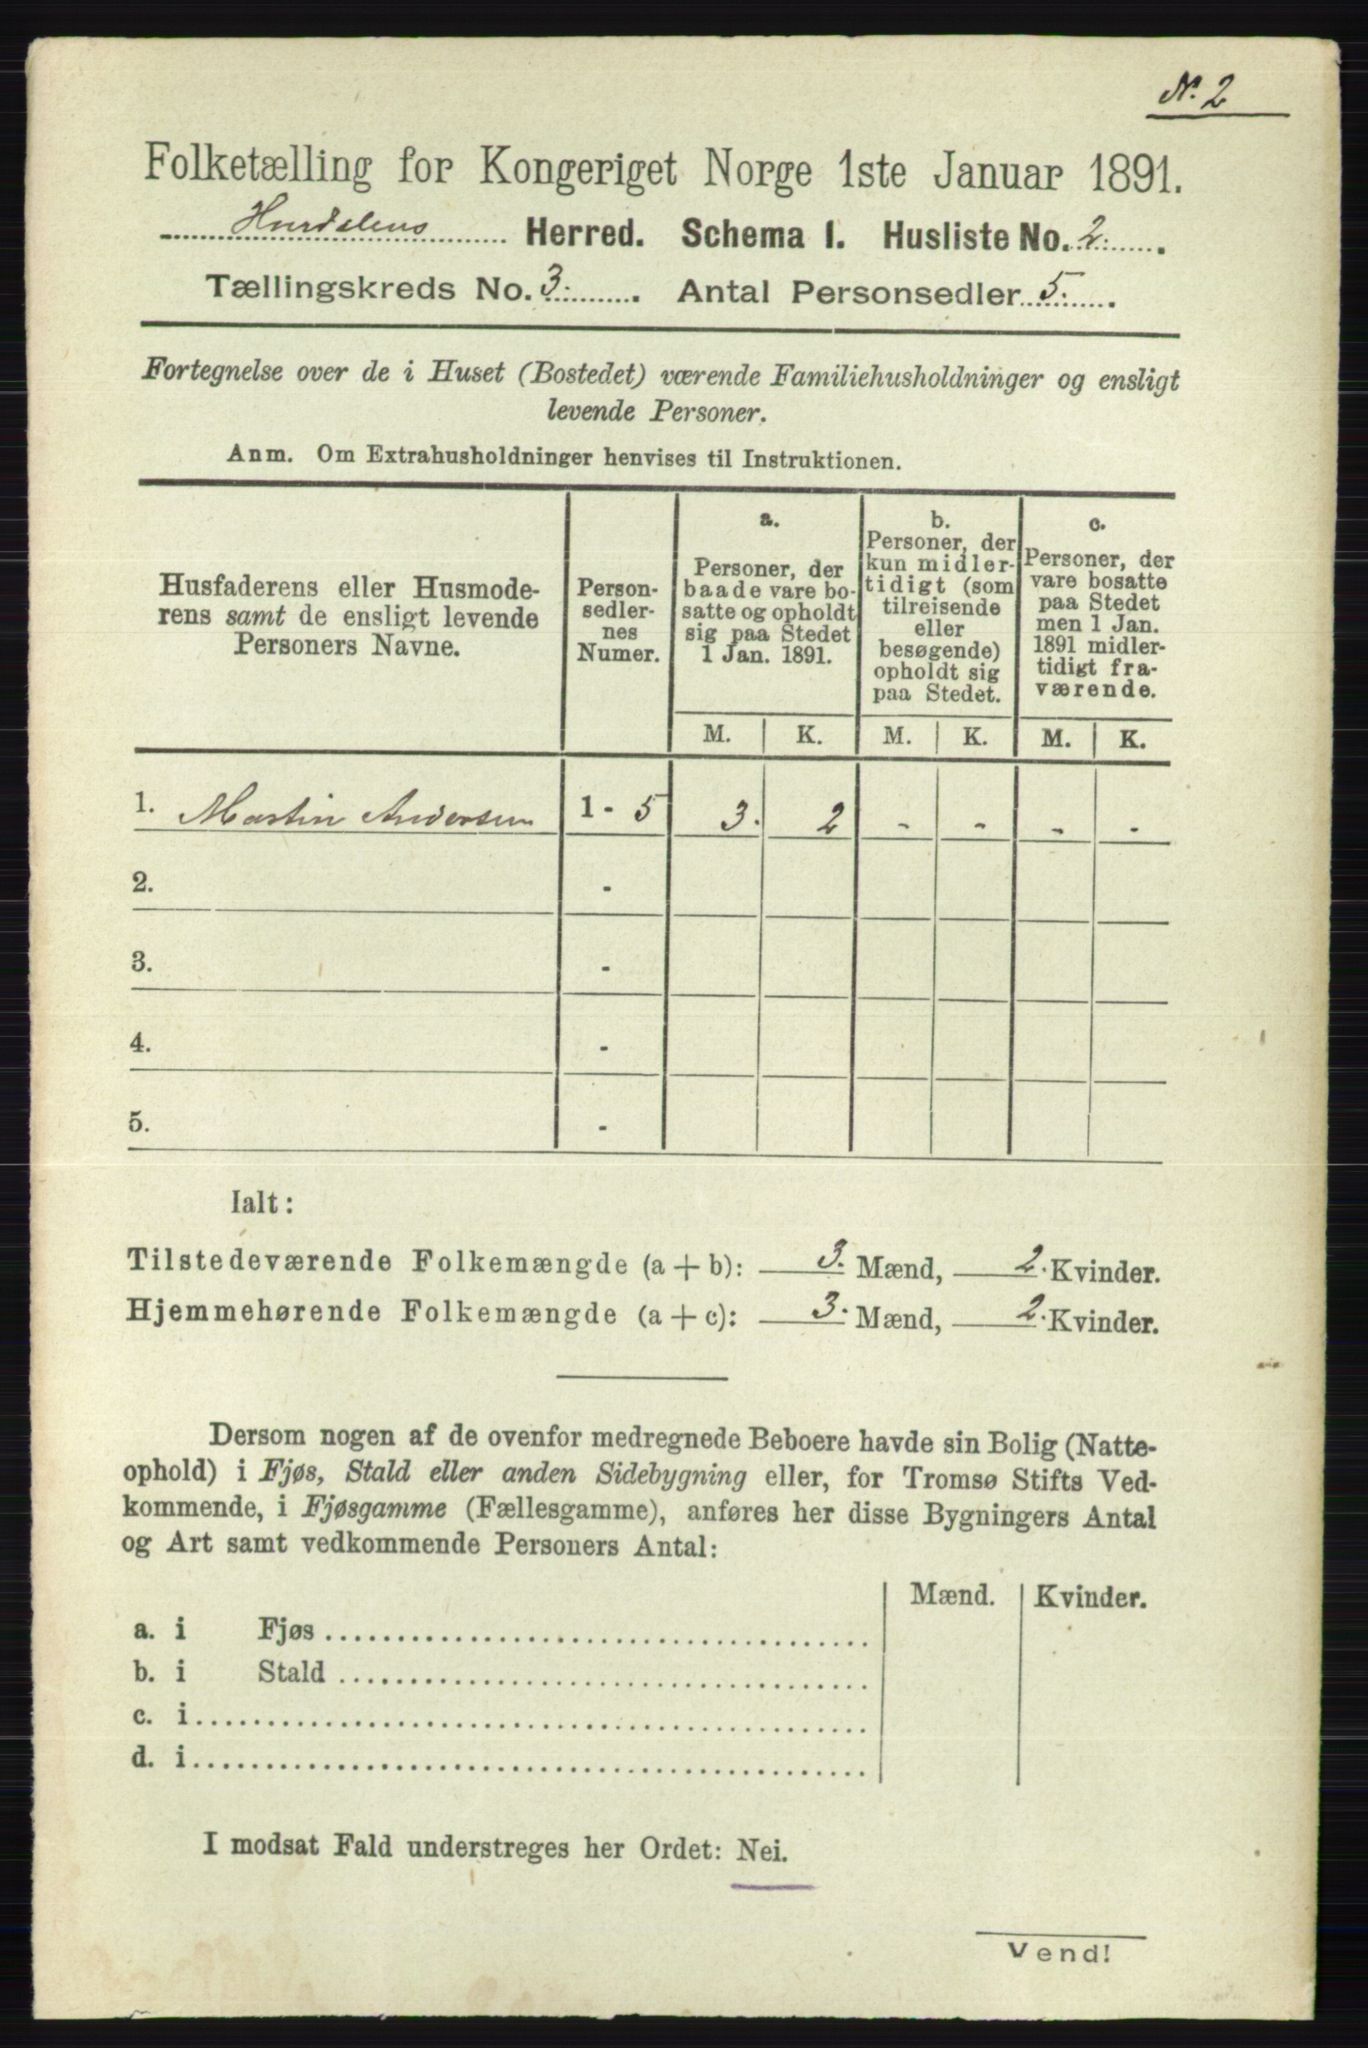 N. 2
Folketælling for Kongeriget Norge 1ste Januar 1891.
Hurdalens Herred. Schema I. Husliste No. 2.
Tællingskreds No. 3. Antal Personsedler 5.
Fortegnelse over de i Huset (Bostedet) værende Familiehusholdninger og ensligt
levende Personer.
Anm. Om Extrahusholdninger henvises til Instruktionen.
Husfaderens eller Husmode-
rens samt de ensligt levende
Personers Navne.
Person-
sedler-
nes
Numer.
a.
Personer, der
baade vare bo-
satte og opholdt
sig paa Stedet
1 Jan. 1891.
b.
Personer, der
kun midler-
tidigt (som
tilreisende
eller
besøgende)
opholdt sig
paa Stedet.
c.
Personer, der
vare bosatte
paa Stedet
men 1 Jan.
1891 midler-
tidigt fra-
værende.
M. K. M. K. M. K.
1. Martin Andersen 1 - 5 3. 2 - - - -
2. -
3. -
4. -
5. -
Ialt:
Tilstedeværende Folkemængde (a + b): 3. Mænd, 2. Kvinder.
Hjemmehørende Folkemængde (a + c): 3. Mænd, 2. Kvinder.
Dersom nogen af de ovenfor medregnede Beboere havde sin Bolig (Natte-
ophold) i Fjøs, Stald eller anden Sidebygning eller, for Tromsø Stifts Ved-
kommende, i Fjøsgamme (Fællesgamme), anføres her disse Bygningers Antal
og Art samt vedkommende Personers Antal:
Mænd. Kvinder.
a. i Fjøs
b. i Stald
c. i
d. i
I modsat Fald understreges her Ordet: Nei.
Vend!